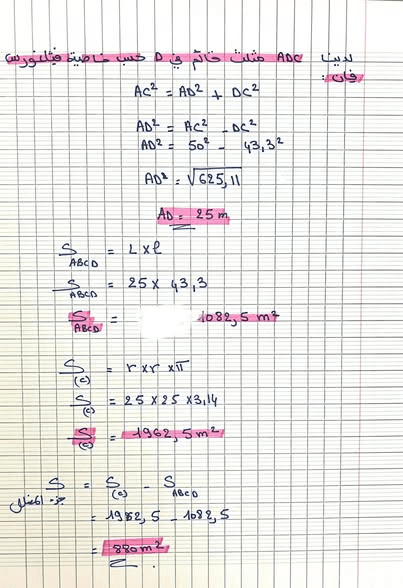 لدينا ADC مثلث قائم في D حسب خاصية فيتاغورس
فإن:
AC² = AD² + DC²
AD² = AC² - DC²
AD² = 50² - 43,3²
AD² = √625,11
AD = 25 m
S ABCD = L x l
S ABCD = 25 x 43,3
S ABCD = 1082,5 m²
S (c) = r x r x π
S (c) = 25 x 25 x 3,14
S (c) = 1962,5 m²
S جزء المظلل = S (c) - S ABCD
= 1962,5 - 1082,5
= 880 m²